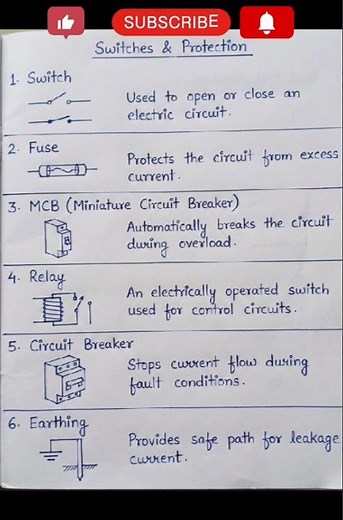 SUBSCRIBE
Switches & Protection
1. Switch
Used to open or close an
electric circuit.
2. Fuse
Protects the circuit from excess
current.
3. MCB (Miniature Circuit Breaker)
Automatically breaks the circuit
during overload.
4. Relay
An electrically operated switch
used for control circuits.
5. Circuit Breaker
Stops current flow during
fault conditions.
6. Earthing
Provides safe path for leakage
current.